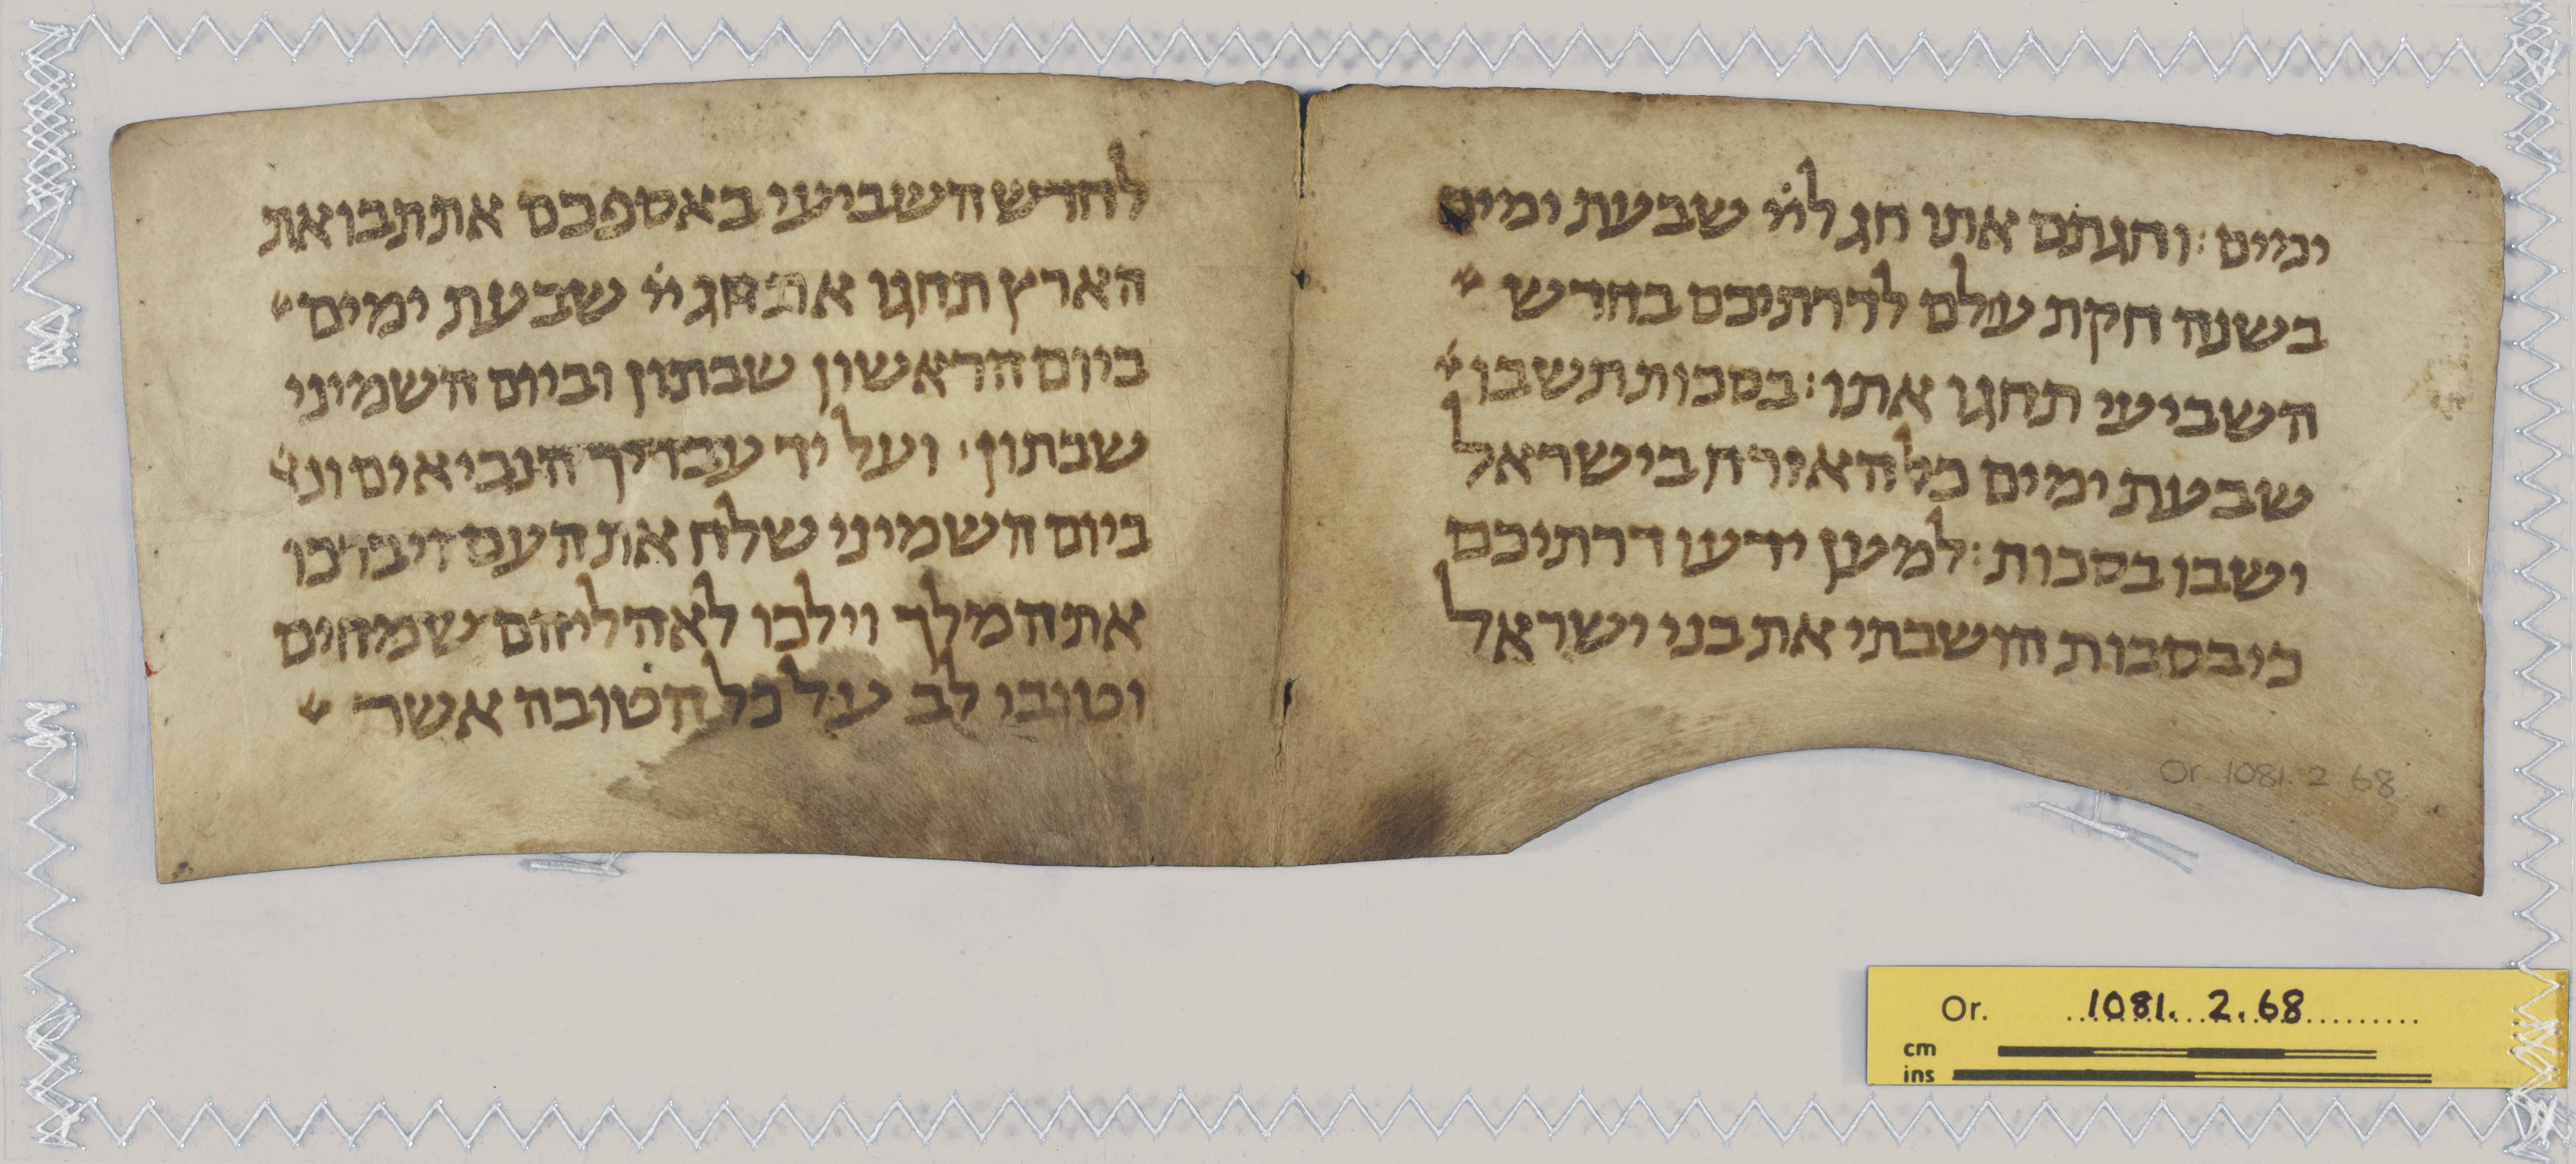 ימים : וחגתם אתו חג לייי שבעת ימים
בשנה חקת עולם לדרתיכם בחדש
השביעי תחגו אתו : בסכות תשבו
שבעת ימים כל האזרח בישראל
ישבו בסכות : למען ידעו דרתיכם
כי בסכות הושבתי את בני ישראל
לחדש השביעי באספכם את תבואת
הארץ תחגו את חג ייי שבעת ימים
ביום הראשון שבתון וביום השמיני
שבתון . ועל יד עבדיך הנביאים ונא
ביום השמיני שלח את העם ויברכו
את המלך וילכו לאהליהם שמחים
וטובי לב על כל הטובה אשר
Or 1081. 2 68
Or. 1081. 2. 68
cm
ins